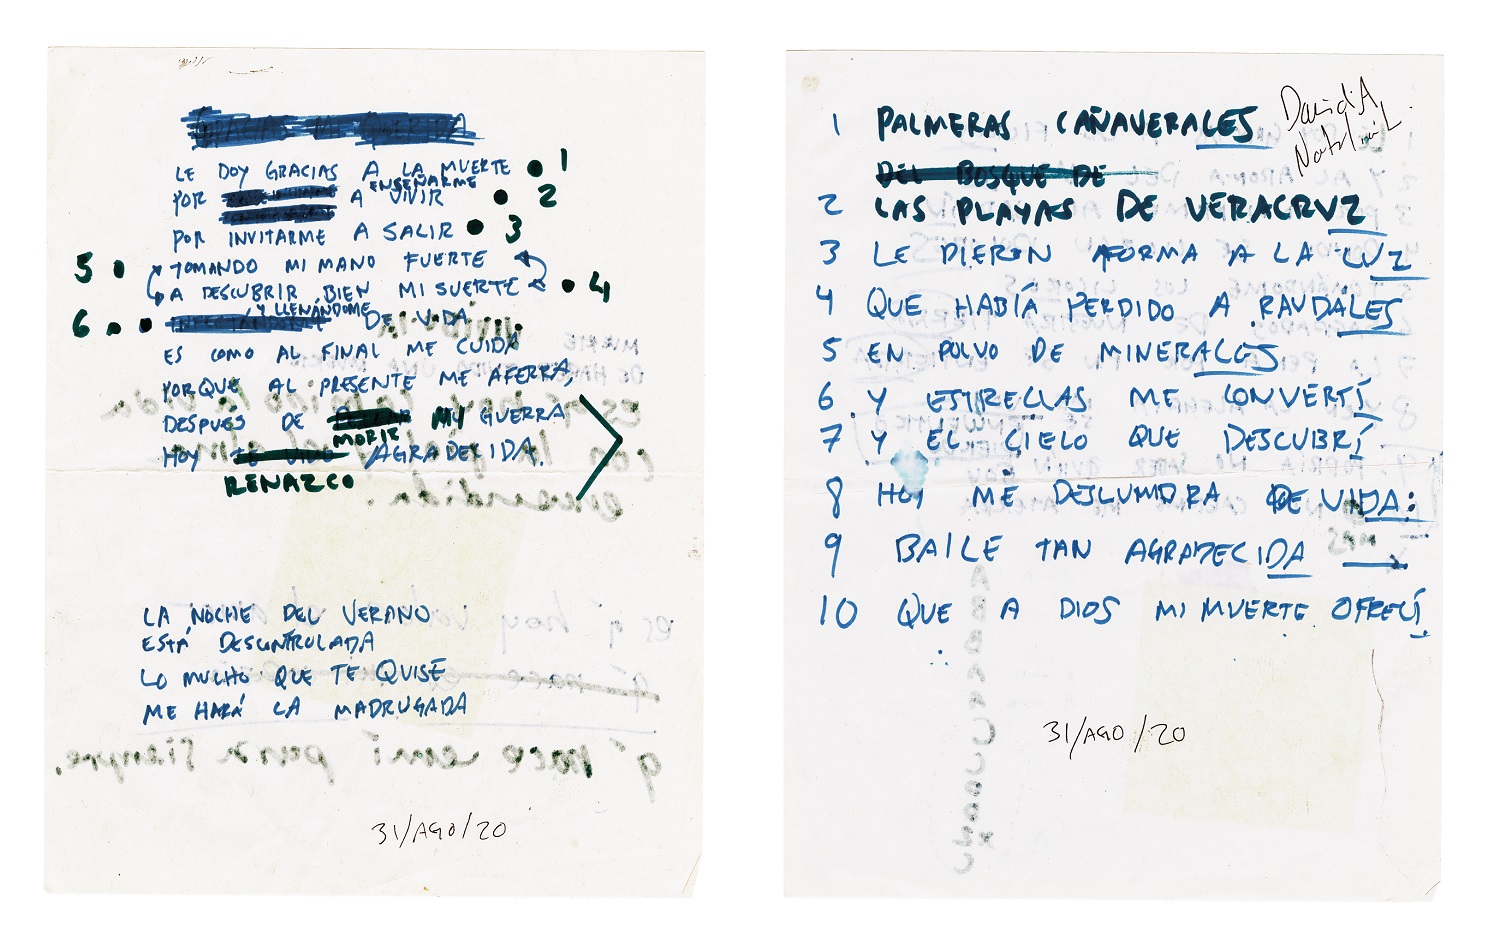 LE DOY GRACIAS A LA MUERTE • 1
ENSEÑARME
POR A VIVIR • 2
POR INVITARME A SALIR • 3
5 • TOMANDO MI MANO FUERTE
A DESCUBRIR BIEN MI SUERTE • 4
Y LLENÁNDOME
6 • • DE VIDA
ES COMO AL FINAL ME CUIDA
PORQUE AL PRESENTE ME AFERRA,
DESPUÉS DE MI GUERRA
MORIR
HOY TE VIDO AGRADECIDA.
RENAZCO
LA NOCHE DEL VERANO
ESTÁ DESCONTROLADA
LO MUCHO QUE TE QUISE
ME HARÁ LA MADRUGADA
31/AGO/20
1 PALMERAS CAÑAVERALES
DEL BOSQUE DE
2 LAS PLAYAS DE VERACRUZ
3 LE DIERON FORMA A LA LUZ
4 QUE HABÍA PERDIDO A RAUDALES
5 EN POLVO DE MINERALES
6 Y ESTRELLAS ME CONVERTÍ
7 Y EL CIELO QUE DESCUBRÍ
8 HOY ME DESLUMBRA DE VIDA:
9 BAILE TAN AGRADECIDA →
10 QUE A DIOS MI MUERTE OFRECÍ
31/AGO/20